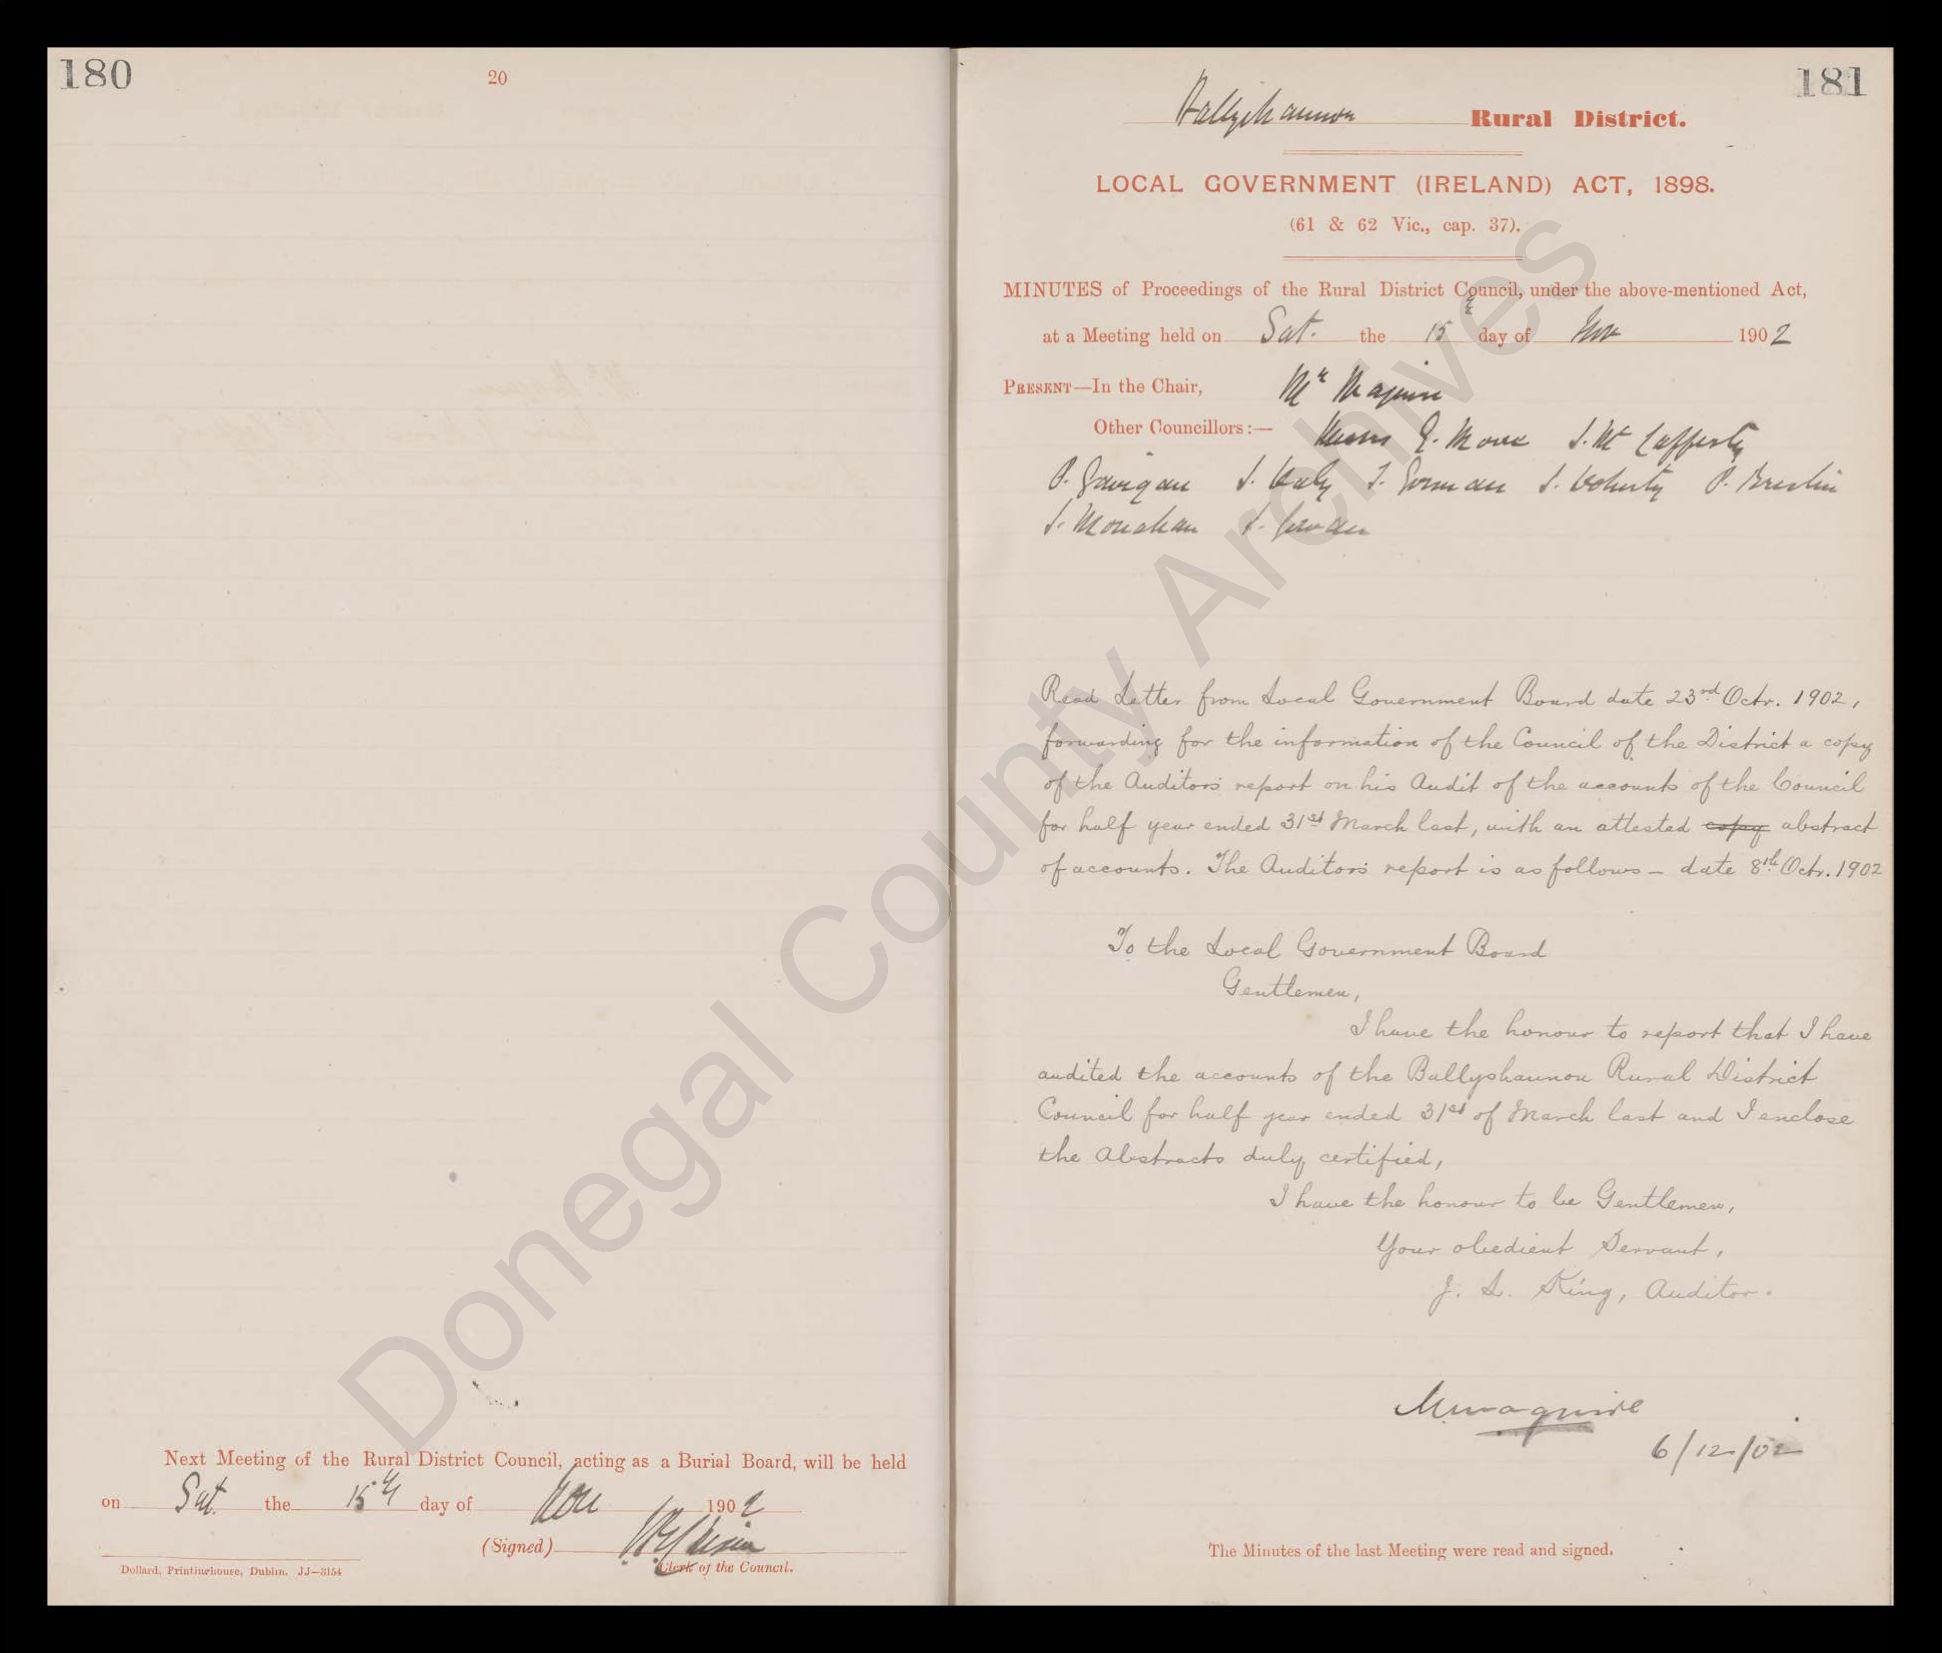 180
20
Next Meeting of the Rural District Council, acting as a Burial Board, will be held
on Sat. the 15th day of Nov 1902
(Signed)
Clerk of the Council.
Dollard, Printinghouse, Dublin. JJ—3154
181
Ballyshannon Rural District.
LOCAL GOVERNMENT (IRELAND) ACT, 1898.
(61 & 62 Vic., cap. 37).
MINUTES of Proceedings of the Rural District Council, under the above-mentioned Act,
at a Meeting held on Sat. the 15th day of Nov 1902
PRESENT—In the Chair, Mr Maguire
Other Councillors:— Messrs J. Mc Cafferty
P. Gavigan J. Daly T. Gorman J. Doherty P. Breslin
J. Monahan J.
Read Letter from Local Government Board date 23rd Octr. 1902,
forwarding for the information of the Council of the District a copy
of the Auditors report on his Audit of the accounts of the Council
for half year ended 31st March last, with an attested copy abstract
of accounts. The Auditors report is as follows – date 8th Octr. 1902
To the Local Government Board
Gentlemen,
I have the honour to report that I have
audited the accounts of the Ballyshannon Rural District
Council for half year ended 31st of March last and I enclose
the Abstracts duly certified,
I have the honour to be Gentlemen,
Your obedient Servant,
J. L. King, Auditor.
M Maguire
6/12/02
The Minutes of the last Meeting were read and signed.
Donegal County Archives